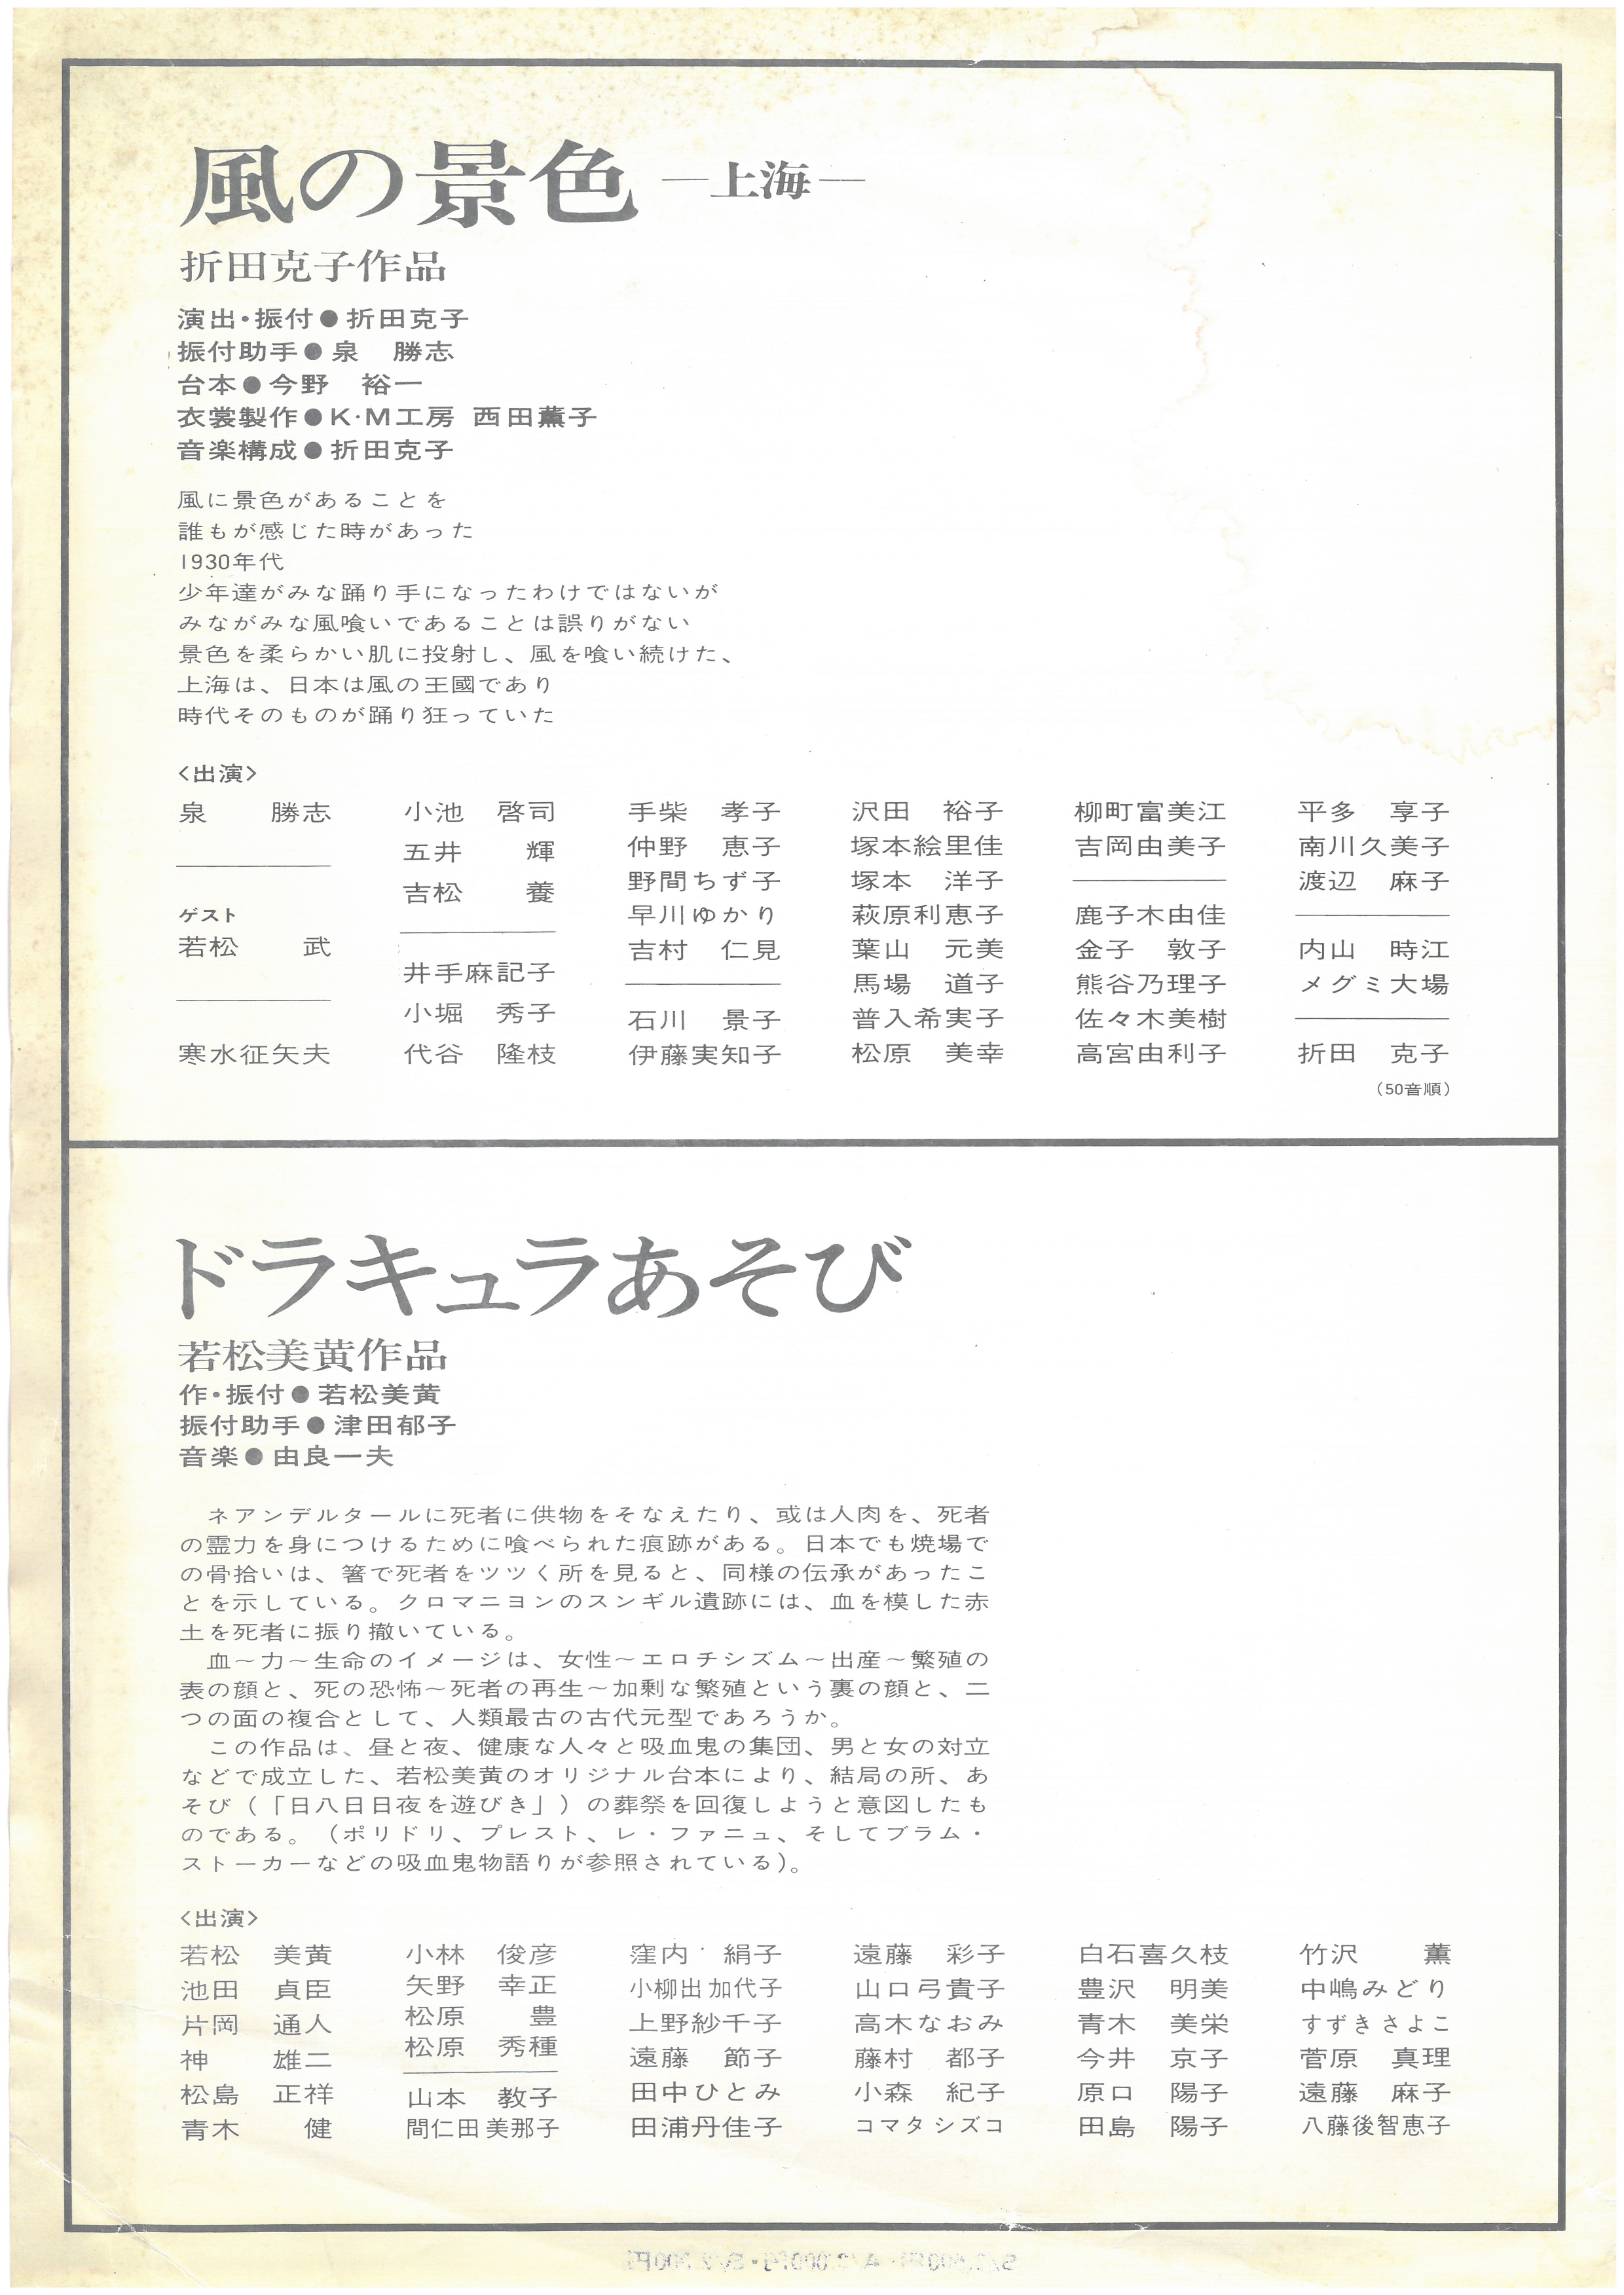 風の景色 ―上海―
折田克子作品
演出・振付●折田克子
振付助手●泉　勝志
台本●今野　裕一
衣裳製作●K・M工房 西田薫子
音楽構成●折田克子
風に景色があることを
誰もが感じた時があった
1930年代
少年達がみな踊り手になったわけではないが
みながみな風喰いであることは誤りがない
景色を柔らかい肌に投射し、風を喰い続けた、
上海は、日本は風の王國であり
時代そのものが踊り狂っていた
<出演>
泉　勝志
ゲスト
若松　武
寒水征矢夫
小池　啓司
五井　輝
吉松　養
井手麻記子
小堀　秀子
代谷　隆枝
手柴　孝子
仲野　恵子
野間ちず子
早川ゆかり
吉村　仁見
石川　景子
伊藤実知子
沢田　裕子
塚本絵里佳
塚本　洋子
萩原利恵子
葉山　元美
馬場　道子
普入希実子
松原　美幸
柳町富美江
吉岡由美子
鹿子木由佳
金子　敦子
熊谷乃理子
佐々木美樹
高宮由利子
平多　享子
南川久美子
渡辺　麻子
内山　時江
メグミ大場
折田　克子
（50音順）
ドラキュラあそび
若松美黄作品
作・振付●若松美黄
振付助手●津田郁子
音楽●由良一夫
　ネアンデルタールに死者に供物をそなえたり、或は人肉を、死者
の霊力を身につけるために喰べられた痕跡がある。日本でも焼場で
の骨拾いは、箸で死者をツツく所を見ると、同様の伝承があったこ
とを示している。クロマニヨンのスンギル遺跡には、血を模した赤
土を死者に振り撤いている。
　血～力～生命のイメージは、女性～エロチシズム～出産～繁殖の
表の顔と、死の恐怖～死者の再生～加剰な繁殖という裏の顔と、二
つの面の複合として、人類最古の古代元型であろうか。
　この作品は、昼と夜、健康な人々と吸血鬼の集団、男と女の対立
などで成立した、若松美黄のオリジナル台本により、結局の所、あ
そび（「日八日日夜を遊びき」）の葬祭を回復しようと意図したも
のである。（ポリドリ、プレスト、レ・ファニュ、そしてブラム・
ストーカーなどの吸血鬼物語りが参照されている）。
<出演>
若松　美黄
池田　貞臣
片岡　通人
神　雄二
松島　正祥
青木　健
小林　俊彦
矢野　幸正
松原　豊
松原　秀種
山本　教子
間仁田美那子
窪内　絹子
小柳出加代子
上野紗千子
遠藤　節子
田中ひとみ
田浦丹佳子
遠藤　彩子
山口弓貴子
高木なおみ
藤村　都子
小森　紀子
コマタシズコ
白石喜久枝
豊沢　明美
青木　美栄
今井　京子
原口　陽子
田島　陽子
竹沢　薫
中嶋みどり
すずきさよこ
菅原　真理
遠藤　麻子
八藤後智恵子